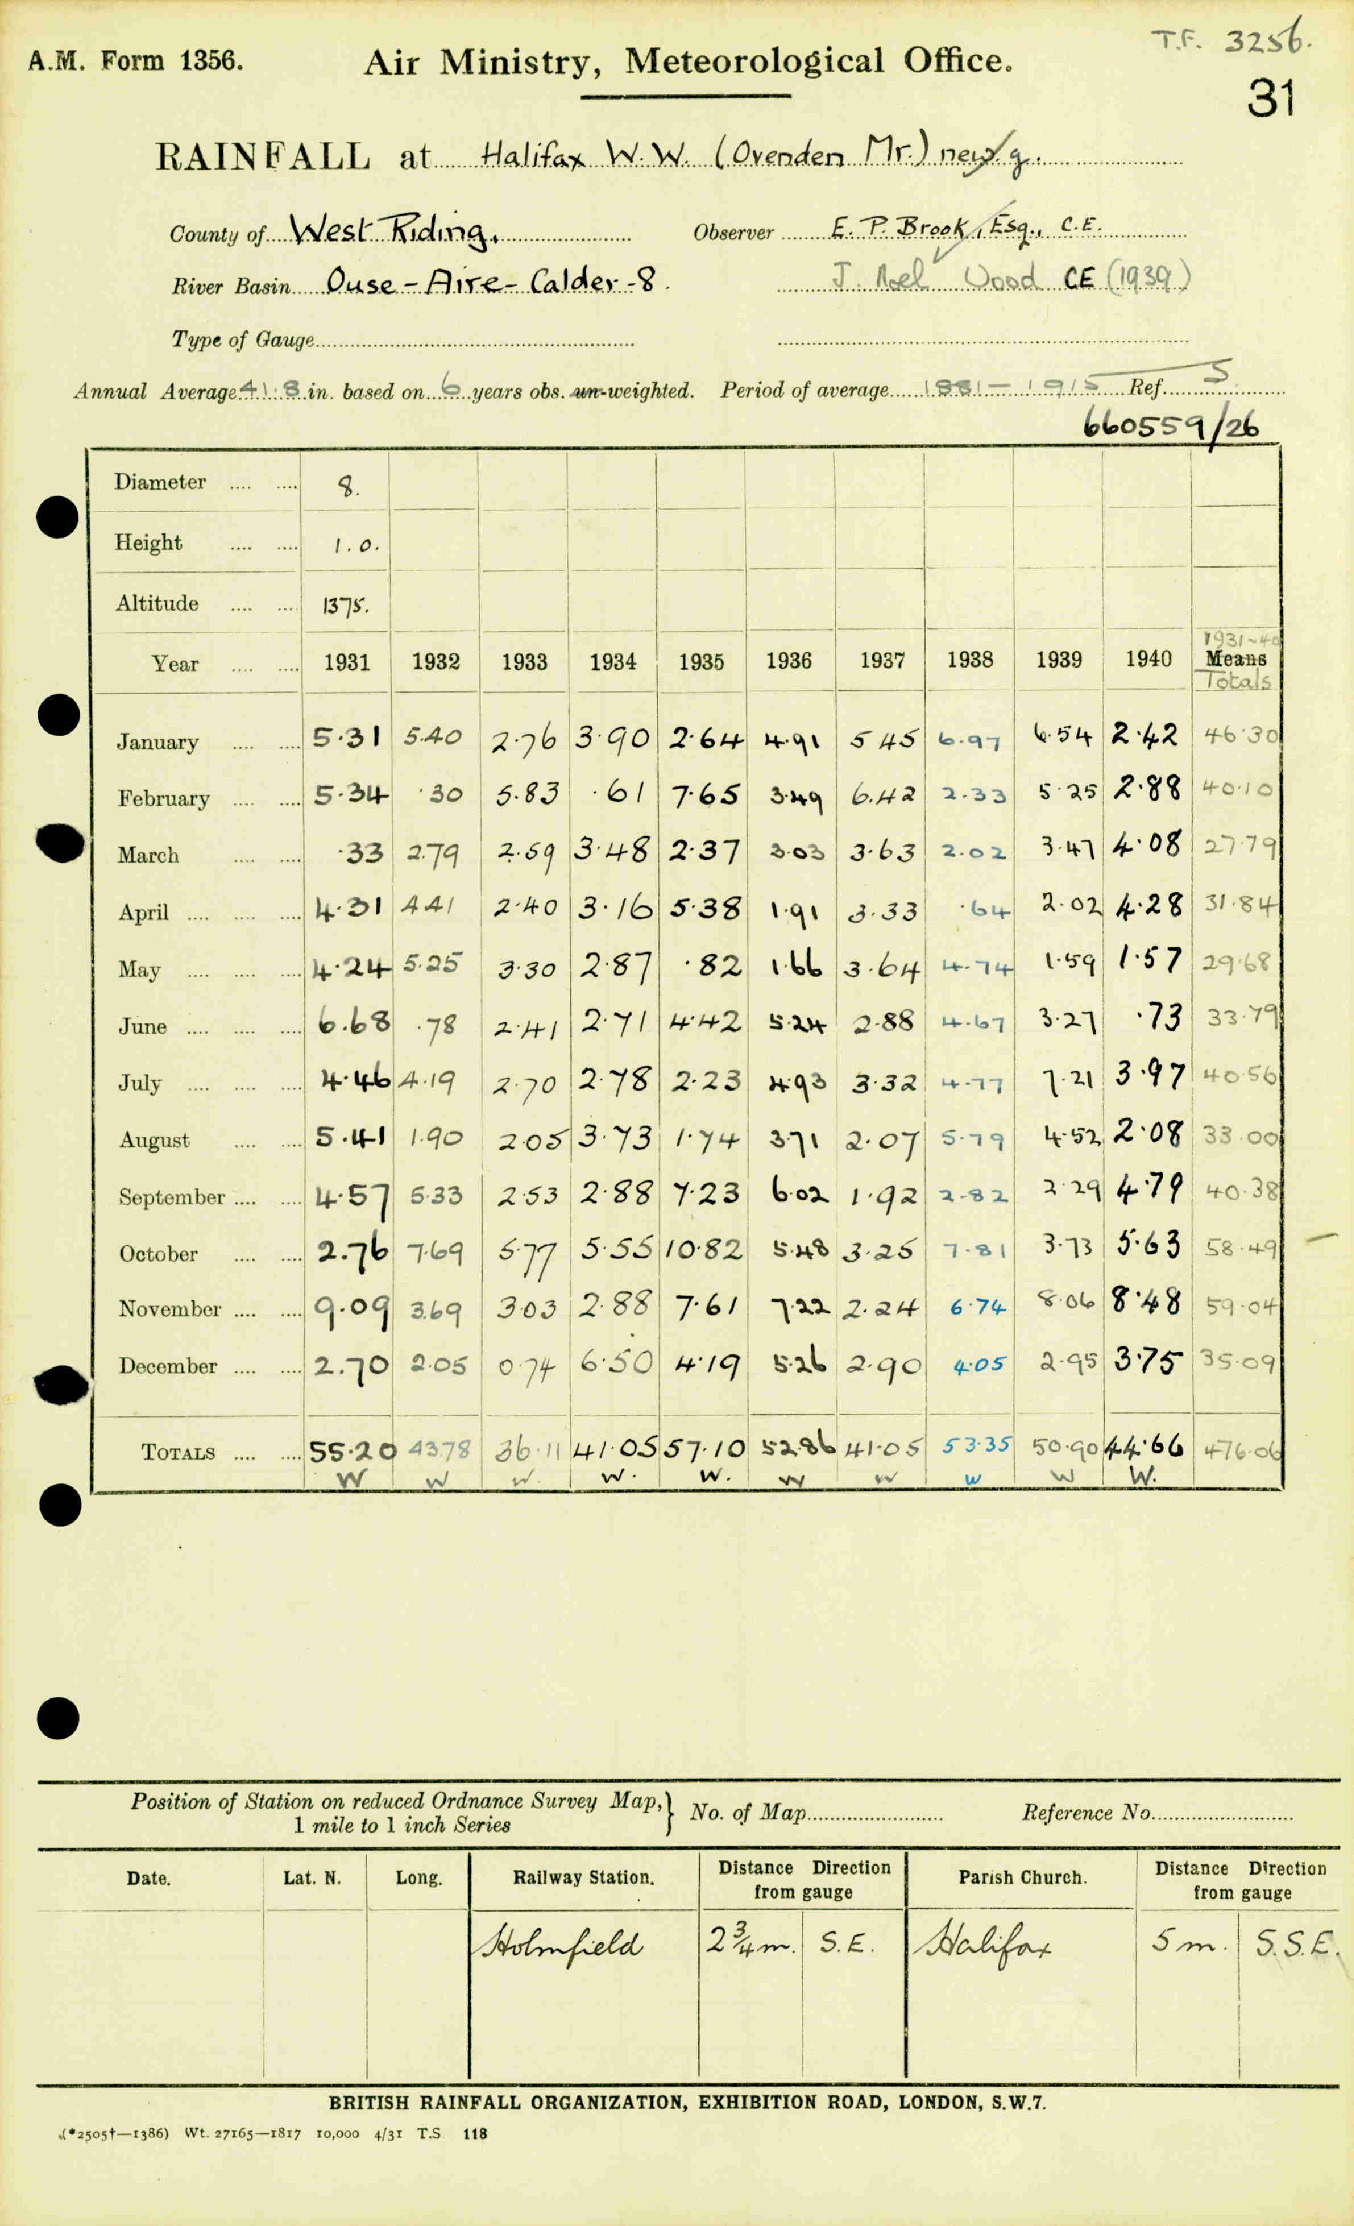 T.F. 3256.
A.M. Form 1356. Air Ministry, Meteorological Office.
31
RAINFALL at Halifax W.W. (Ovenden Mr.) new g.
County of West Riding. Observer E. P. Brook, Esq., C.E.
River Basin Ouse - Aire - Calder - 8. J. Noel Wood CE (1939)
Type of Gauge
Annual Average 41.8 in. based on 6 years obs. un-weighted. Period of average 1881-1915 Ref. S
660559/26
Diameter .... .... 8.
Height .... .... 1.0.
Altitude .... .... 1375.
1931-40
Year .... .... 1931 1932 1933 1934 1935 1936 1937 1938 1939 1940 Means
Totals
January .... .... 5.31 5.40 2.76 3.90 2.64 4.91 5.45 6.97 6.54 2.42 46.30
February .... .... 5.34 .30 5.83 .61 7.65 3.49 6.42 2.33 5.25 2.88 40.10
March .... .... .33 2.79 2.59 3.48 2.37 3.03 3.63 2.02 3.47 4.08 27.79
April .... .... .... 4.31 4.41 2.40 3.16 5.38 1.91 3.33 .64 2.02 4.28 31.84
May .... .... .... 4.24 5.25 3.30 2.87 .82 1.66 3.64 4.74 1.59 1.57 29.68
June .... .... .... 6.68 .78 2.41 2.71 4.42 5.24 2.88 4.67 3.27 .73 33.79
July .... .... .... 4.46 4.19 2.70 2.78 2.23 4.93 3.32 4.77 7.21 3.97 40.56
August .... .... 5.41 1.90 2.05 3.73 1.74 3.71 2.07 5.79 4.52 2.08 33.00
September .... .... 4.57 5.33 2.53 2.88 7.23 6.02 1.92 2.82 2.29 4.79 40.38
October .... .... 2.76 7.69 5.77 5.55 10.82 5.48 3.25 7.81 3.73 5.63 58.49
November .... .... 9.09 3.69 3.03 2.88 7.61 7.22 2.24 6.74 8.06 8.48 59.04
December .... .... 2.70 2.05 0.74 6.50 4.19 5.26 2.90 4.05 2.95 3.75 35.09
TOTALS .... .... 55.20 43.78 36.11 41.05 57.10 52.86 41.05 53.35 50.90 44.66 476.06
W W W. W. W. W W W W W.
Position of Station on reduced Ordnance Survey Map, } No. of Map Reference No.
1 mile to 1 inch Series
Date. Lat. N. Long. Railway Station. Distance Direction from gauge Parish Church. Distance Direction from gauge
Holmfield 2 3/4 m. S.E. Halifax 5 m. S.S.E.
BRITISH RAINFALL ORGANIZATION, EXHIBITION ROAD, LONDON, S.W.7.
(*2505†—1386) Wt. 27165—1817 10,000 4/31 T.S. 118